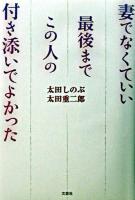 妻でなくていい
最後まで
この人の
付き添いでよかった
太田しのぶ
太田重二郎
文芸社